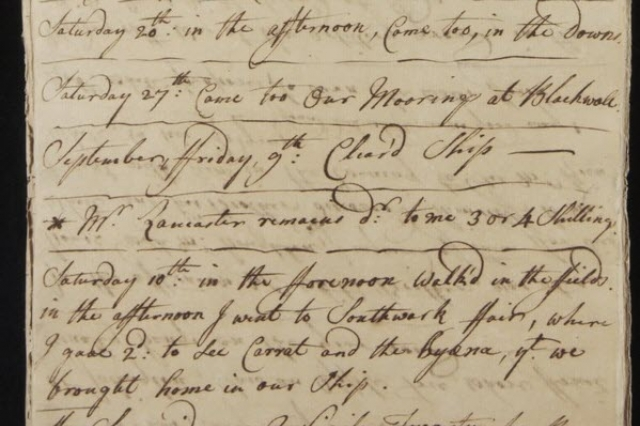 Saturday 20th: in the afternoon, Came too, in the Downs.
Saturday 27th: Came too Our Moorings at Blackwall
September, ffriday, 9th: Clear'd Ship —
* Mr Lancaster remains dr. to me 3 or 4 Shillings.
Saturday 10th: in the fforenoon Walk'd in the ffields.
in the afternoon I went to Southwark ffair, where
I gave 2d. to See Carrat and the hyæna, yt. we
brought home in our Ship.